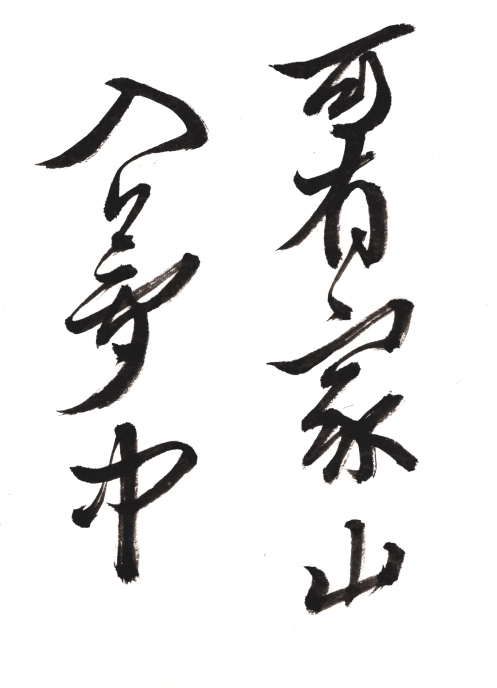 有家山
入夢中